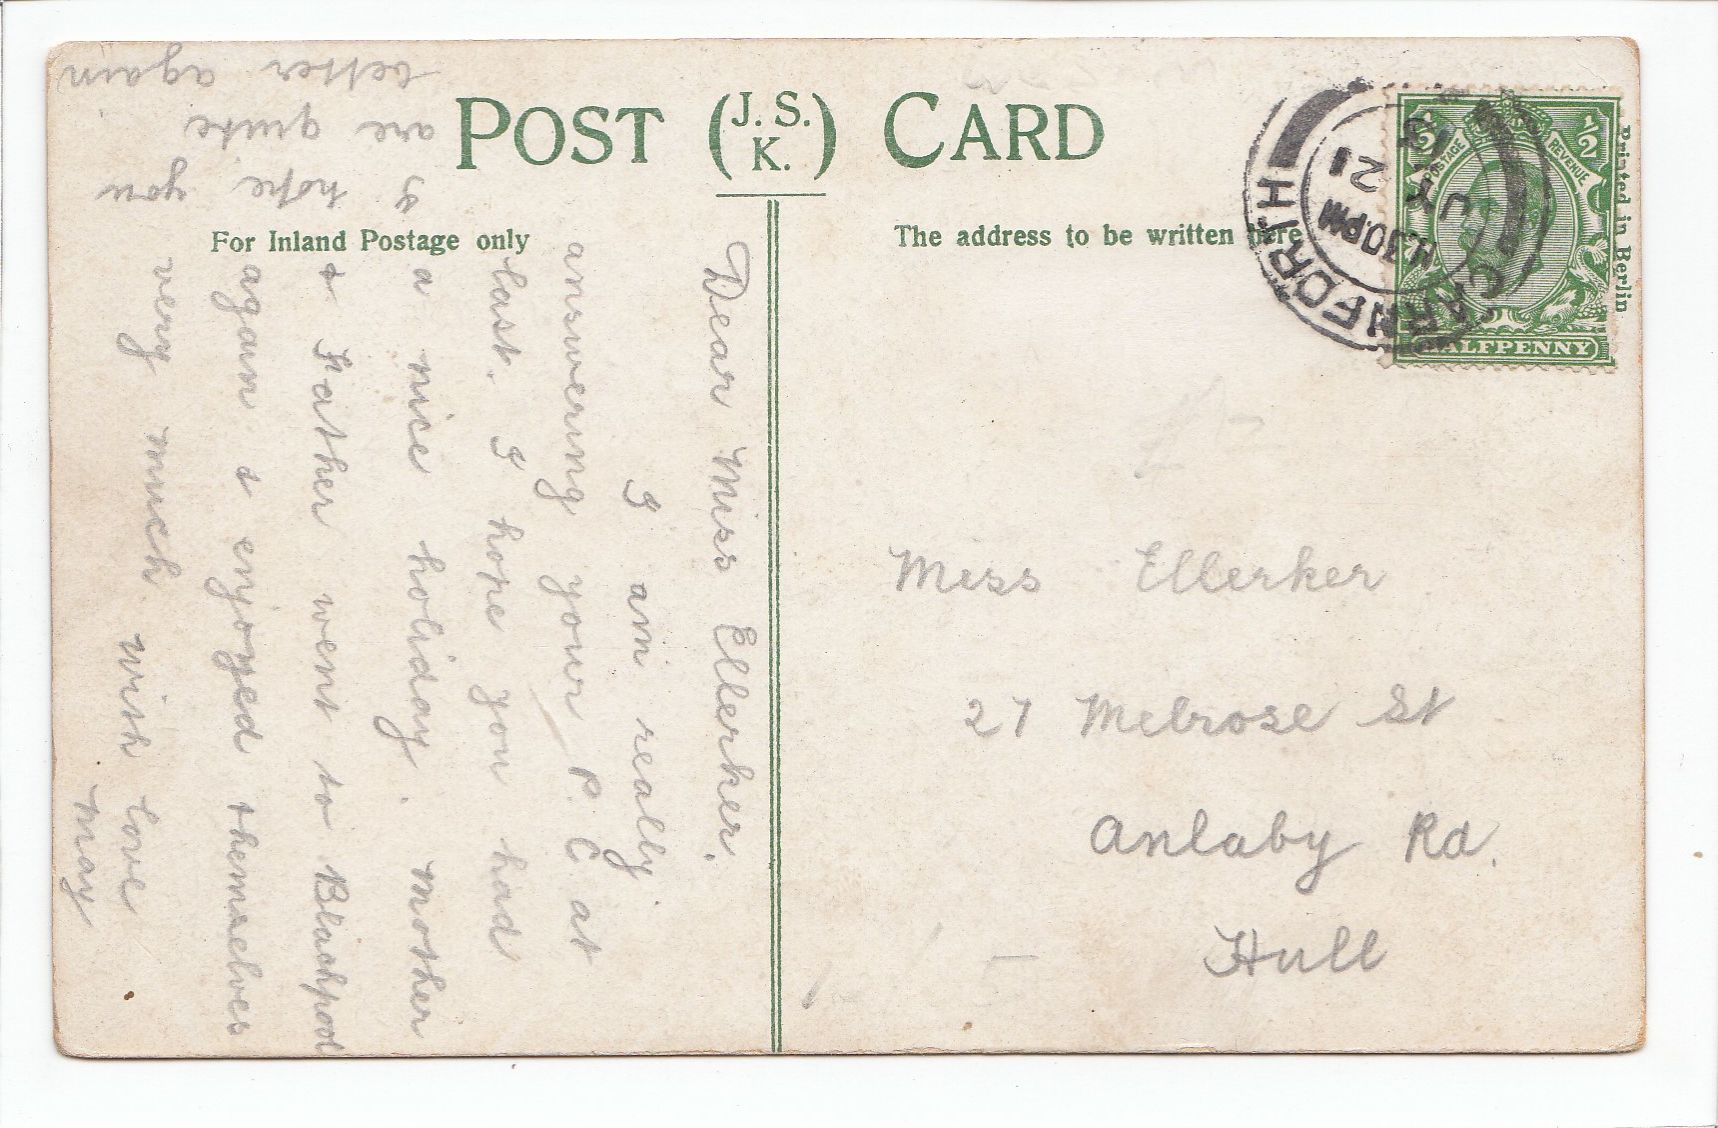 POST (J. S. K.) CARD
For Inland Postage only
The address to be written here
Printed in Berlin
½ ½
POSTAGE REVENUE
HALFPENNY
CARNFORTH
11.30 PM
21 JY
13
Miss Ellerker
27 Melrose St
Anlaby Rd.
Hull
Dear Miss Ellerker.
I am really
answering your P. C at
last. I hope you had
a nice holiday. Mother
& Father went to Blackpool
again & enjoyed themselves
very much with love
May
I hope you
are quite
better again